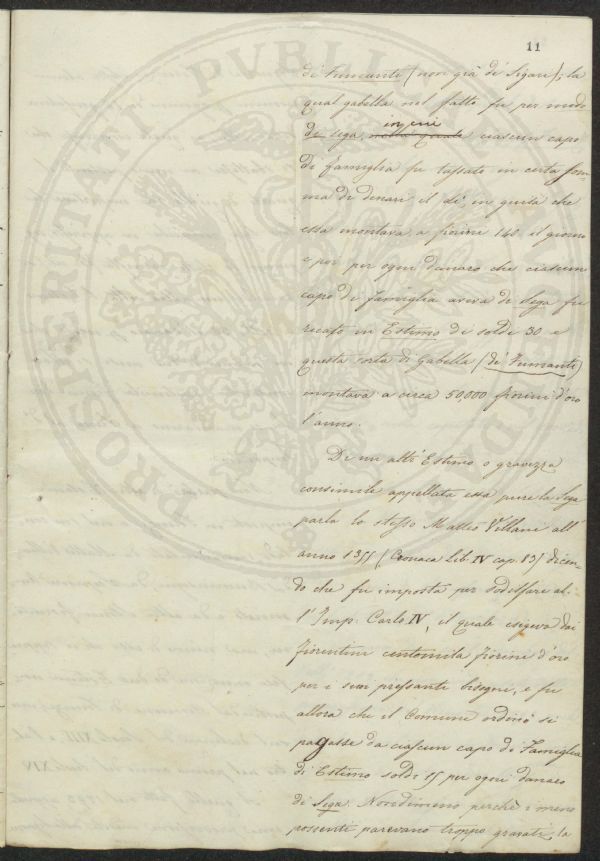 11
di Fumanti (non già de' Sigari); la
qual gabella nel fatto fu per modo
di Sega, nella quale in cui ciascun capo
di famiglia fu tassato in certa som-
ma di denari il dì, in guisa che
essa montava a fiorini 140 il giorno
e poi per ogni danaro che ciascun
capo di famiglia aveva di Sega fu
recato in Estimo di soldi 30 e
questa sorta di Gabella (de' Fumanti)
montava a circa 50,000 fiorini d'oro
l'anno.
Di un altr'Estimo o gravezza
consimile appellata essa pure la Sega
parla lo stesso Matteo Villani all'
anno 1355 (Cronaca Lib. IV cap. 83) dicen-
do che fu imposta per sodisfare al-
l'Imp: Carlo IV, il quale esigeva dai
Fiorentini centomila fiorini d'oro
per i suoi pressanti bisogni, e fu
allora che il Comune ordinò si
pagasse da ciascun capo di Famiglia
di Estimo soldi 15 per ogni danaro
di Sega. Nondimeno perchè i meno
possenti parevano troppo gravati, la
PROSPERITATI PVBLICAE